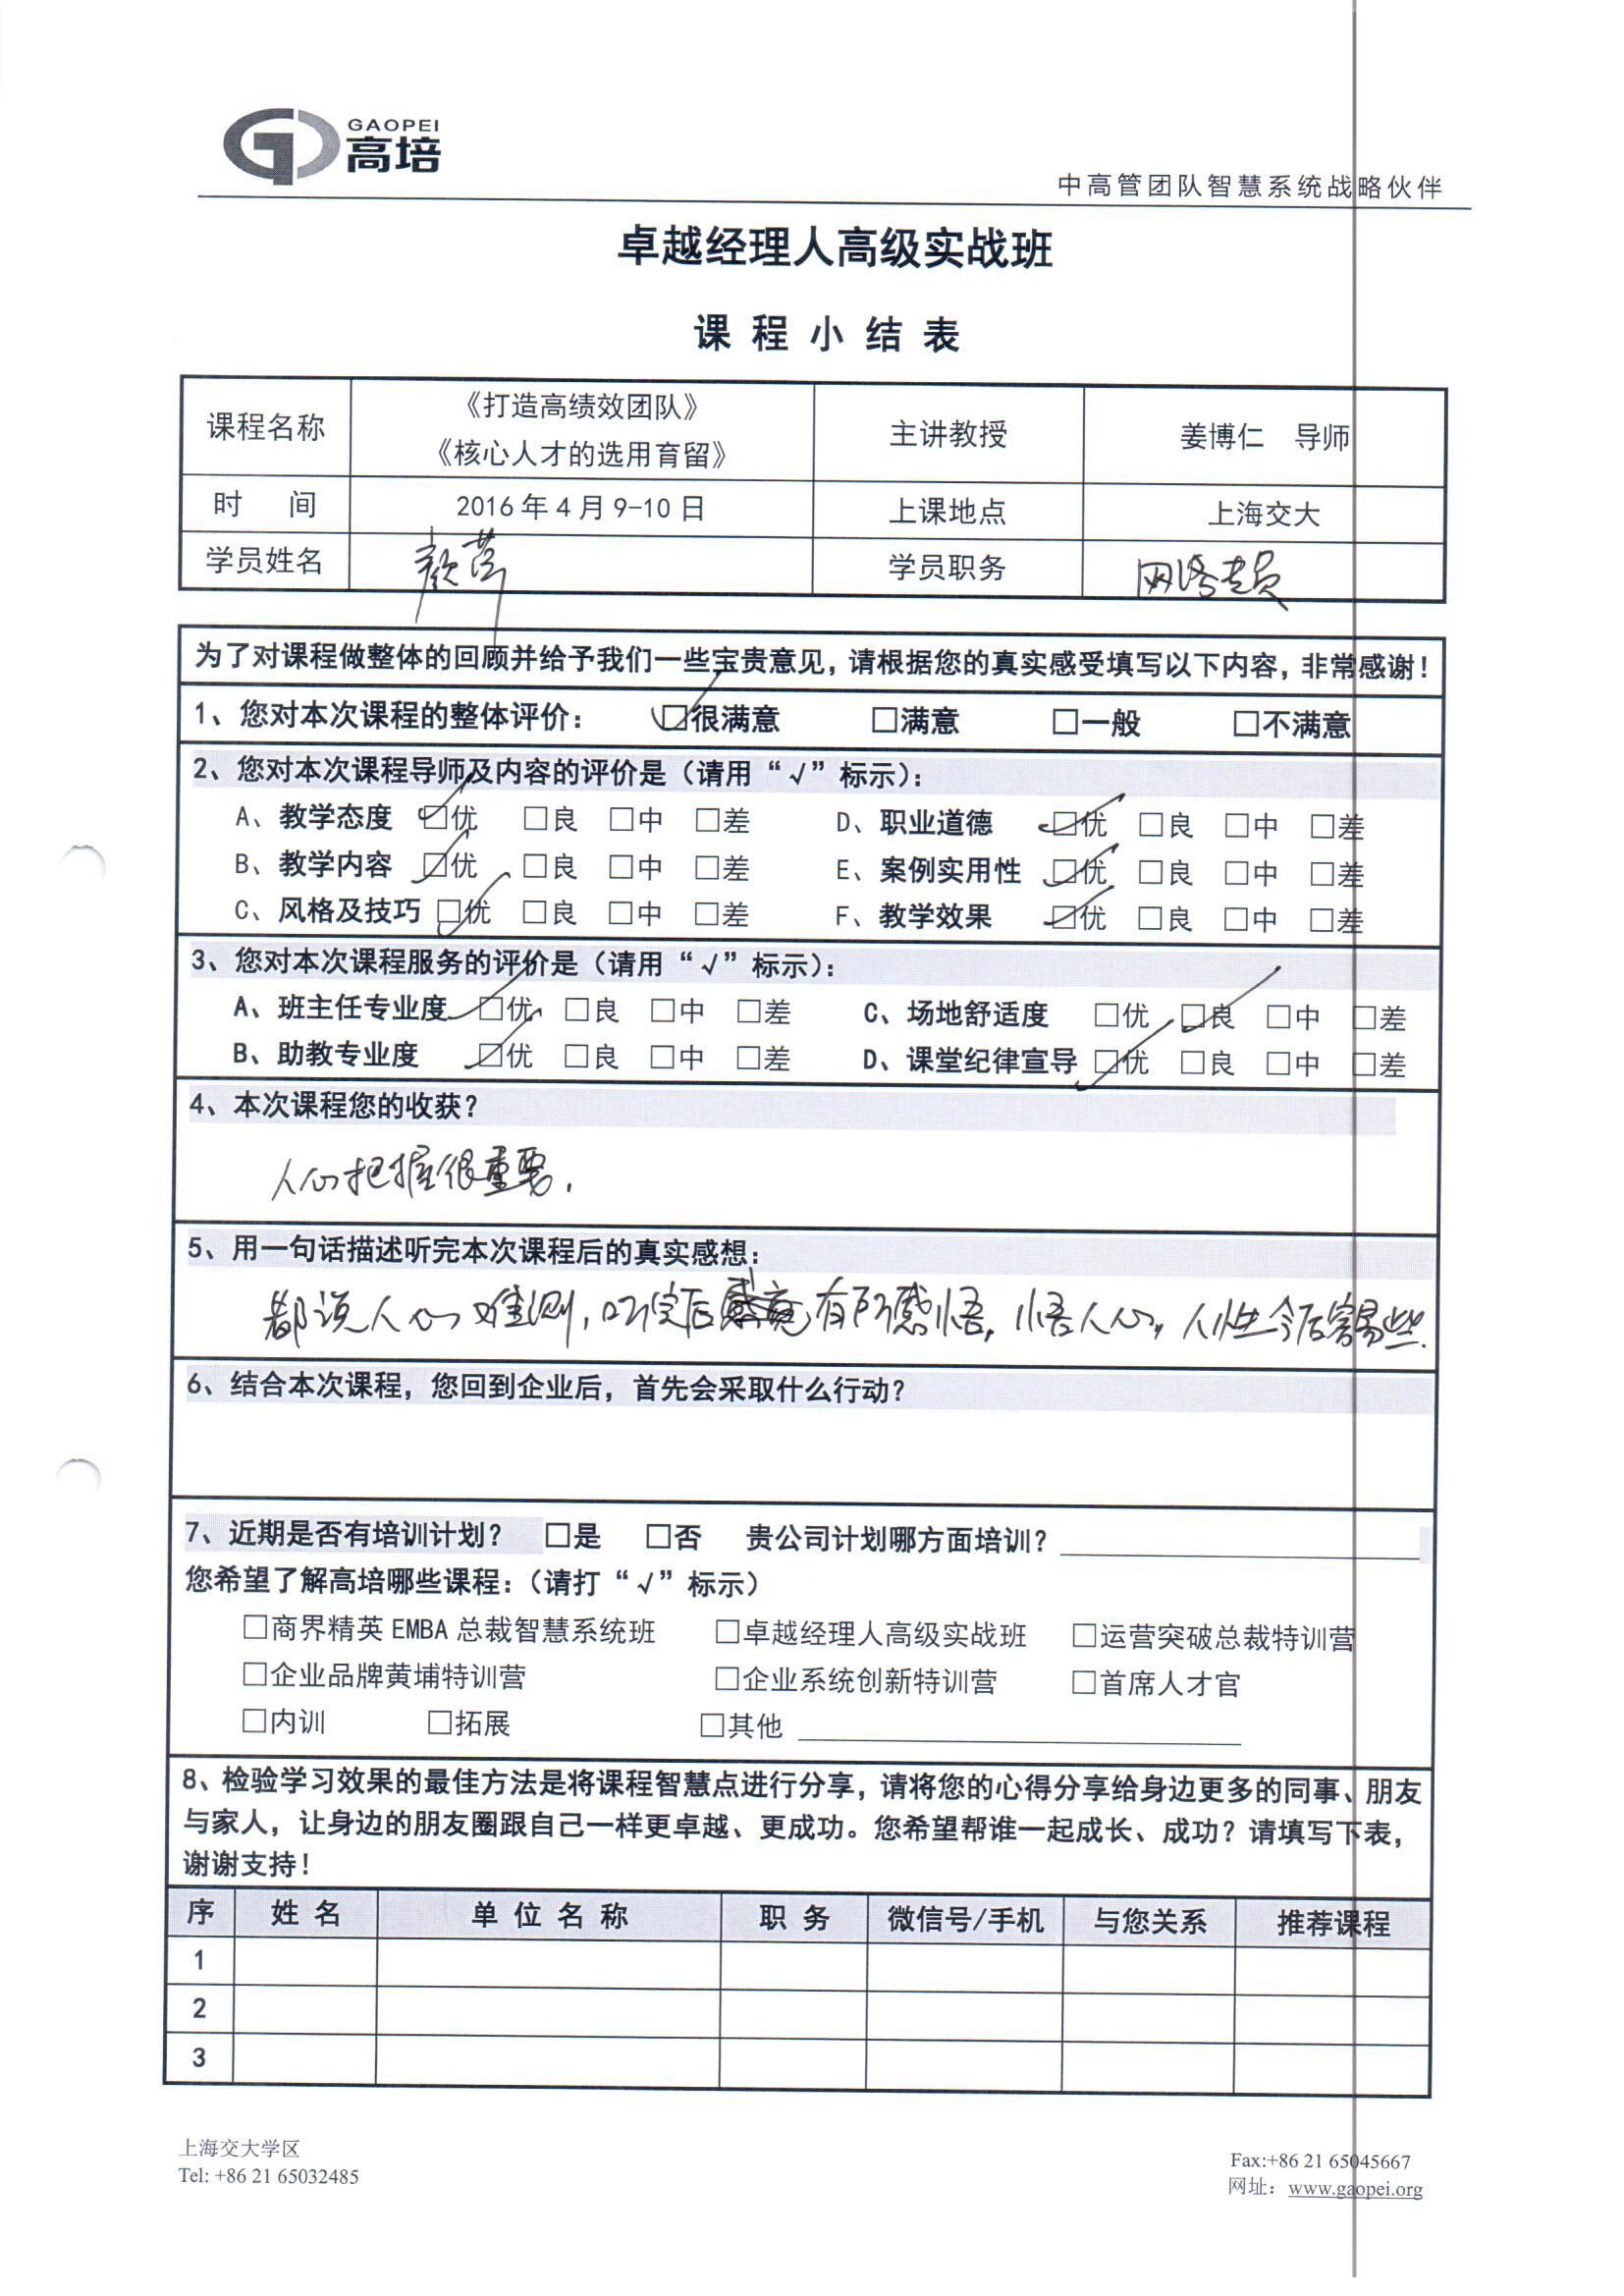 GAOPEI
高培
中高管团队智慧系统战略伙伴
卓越经理人高级实战班
课程小结表
课程名称 《打造高绩效团队》 《核心人才的选用育留》 主讲教授 姜博仁 导师
时 间 2016年4月9-10日 上课地点 上海交大
学员姓名 颜营 学员职务 网络专员
为了对课程做整体的回顾并给予我们一些宝贵意见，请根据您的真实感受填写以下内容，非常感谢！
1、您对本次课程的整体评价： ☑很满意 □满意 □一般 □不满意
2、您对本次课程导师及内容的评价是（请用“√”标示）：
A、教学态度 ☑优 □良 □中 □差 D、职业道德 ☑优 □良 □中 □差
B、教学内容 ☑优 □良 □中 □差 E、案例实用性 ☑优 □良 □中 □差
C、风格及技巧 ☑优 □良 □中 □差 F、教学效果 ☑优 □良 □中 □差
3、您对本次课程服务的评价是（请用“√”标示）：
A、班主任专业度 ☑优 □良 □中 □差 C、场地舒适度 □优 ☑良 □中 □差
B、助教专业度 ☑优 □良 □中 □差 D、课堂纪律宣导 ☑优 □良 □中 □差
4、本次课程您的收获？
人心把握很重要.
5、用一句话描述听完本次课程后的真实感想：
都说人心难测，听完后有所感悟，悟人心，人性今后容易些.
6、结合本次课程，您回到企业后，首先会采取什么行动？
7、近期是否有培训计划？ □是 □否 贵公司计划哪方面培训？
您希望了解高培哪些课程：（请打“√”标示）
□商界精英EMBA总裁智慧系统班 □卓越经理人高级实战班 □运营突破总裁特训营
□企业品牌黄埔特训营 □企业系统创新特训营 □首席人才官
□内训 □拓展 □其他
8、检验学习效果的最佳方法是将课程智慧点进行分享，请将您的心得分享给身边更多的同事、朋友
与家人，让身边的朋友圈跟自己一样更卓越、更成功。您希望帮谁一起成长、成功？请填写下表，
谢谢支持！
序 姓名 单位名称 职务 微信号/手机 与您关系 推荐课程
1
2
3
上海交大学区
Tel: +86 21 65032485
Fax:+86 21 65045667
网址：www.gaopei.org